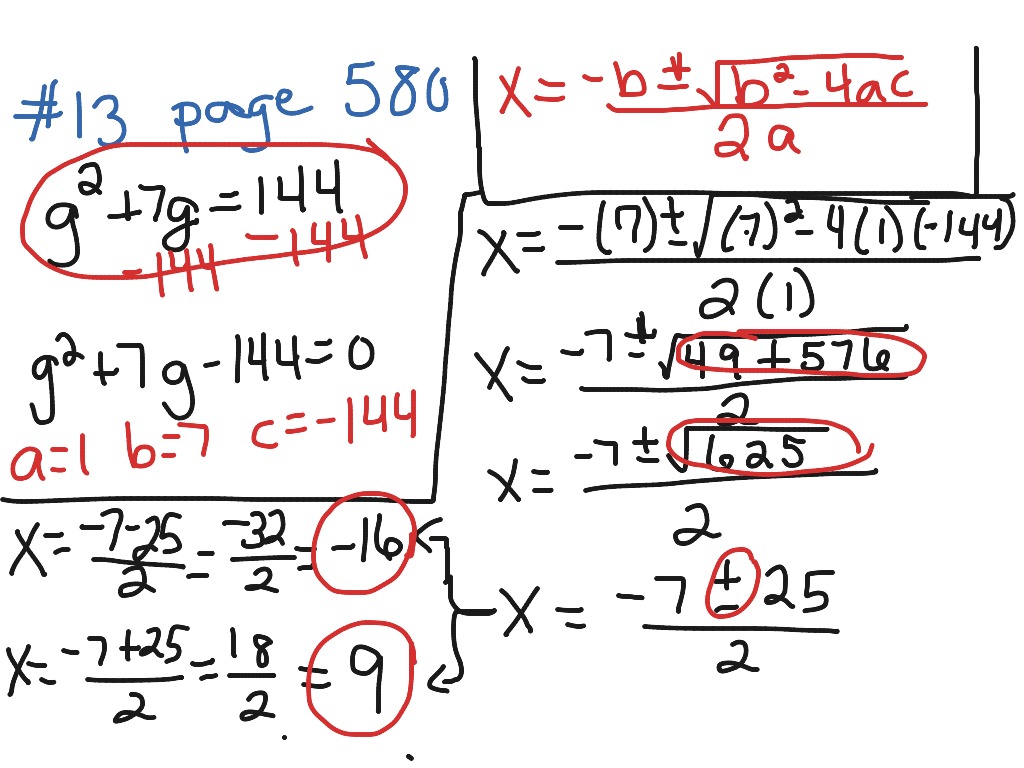 #13 page 580
g² + 7g = 144
-144 -144
g² + 7g - 144 = 0
a=1 b=7 c=-144
x = -b ± √b² - 4ac
2a
x = -(7) ± √(7)² - 4(1)(-144)
2(1)
x = -7 ± √49 + 576
2
x = -7 ± √625
2
x = -7 ± 25
2
x = -7-25 = -32 = -16
2 2
x = -7+25 = 18 = 9
2 2